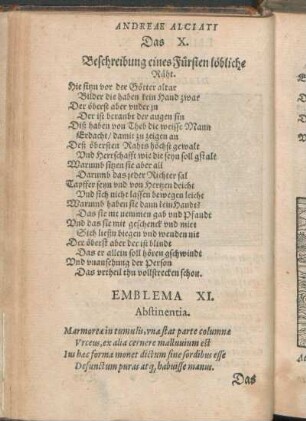 ANDREAE ALCIATI
Das X.
Beschreibung eines Fürsten löbliche
Räht.
Hie sitzn vor der Götter altar
Bilder die haben kein Hand zwar
Der öberst aber under jn
Der ist beraubt der augen sin
Diß haben von Theb die weisse Mann
Erdacht / damit zu zeigen an
Deß öbersten Rahts höchst gewalt
Und Herrschafft wie die seyn soll gstalt
Warumb sitzen sie aber all
Darumb das jeder Richter sal
Tapffer seyn und von Hertzen deicht
Und sich nicht lassen bewegen leicht
Warumb haben sie dann kein Handt?
Das sie nit nemmen gab und Pfandt
Und das sie mit geschenck und miet
Sich liessn biegen und wenden nit
Der öberst aber der ist blindt
Das er allein soll hören gschwindt
Und unansehung der Person
Das vertheil thu vollstrecken schon.
EMBLEMA XI.
Abstinentia.
Marmoreæ in tumulis, una stat parte columnæ
Urceus, ex alia cernere malluvium est
Ius hæc forma monet dictum sine sordibus esse
Defunctum puras atq, habuisse manus.
Das